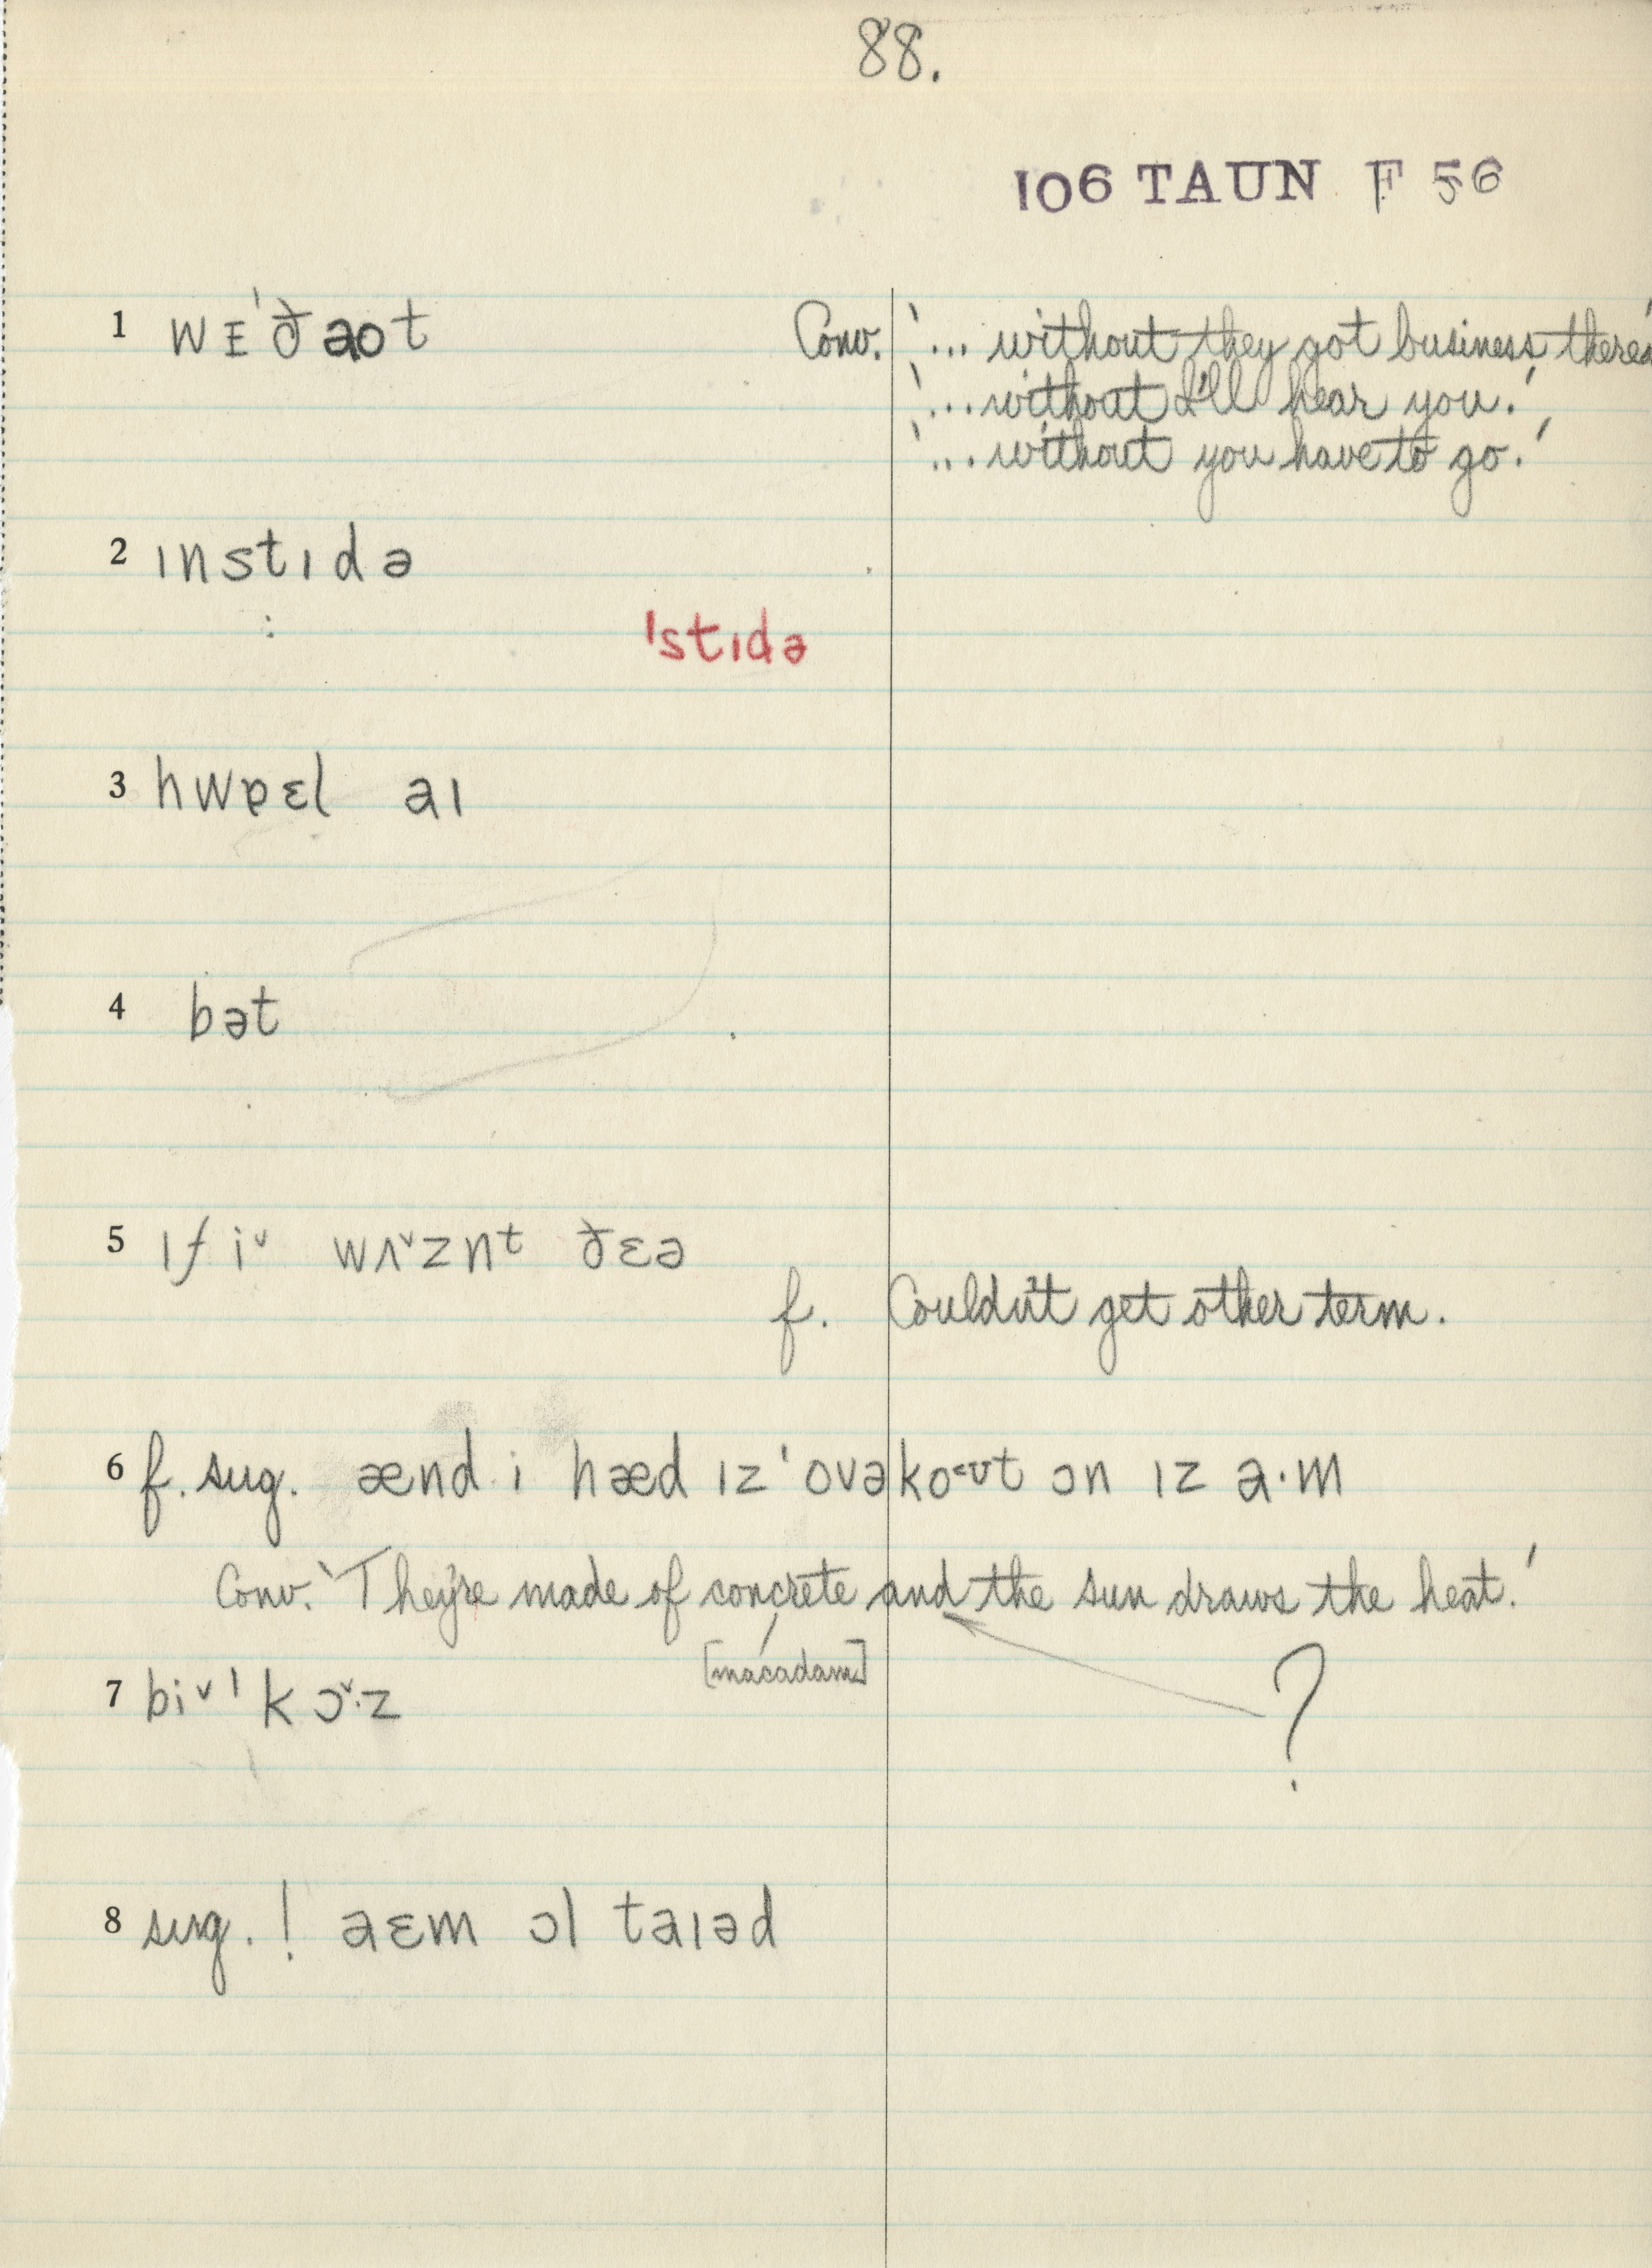 88.
106 TAUN F 56
1 wᴇˈðaot Conv. '... without they got business there'
'... without I'll hear you.'
'... without you have to go.'
2 ɪnstɪdə
ˈstɪdə
3 hwɐɛl aɪ
4 bət
5 ɪf i˅ wʌ˅znt ðɛə
f. Couldn't get other term.
6 f. sug. ænd i hæd ɪz ˈovəko<ʊt ɔn ɪz a·m
Conv. 'They're made of concrete and the sun draws the heat.'
[macadam] ?
7 bi˅ˈkɔ˅·z
8 sug. ! aɛm ɔl taɪəd